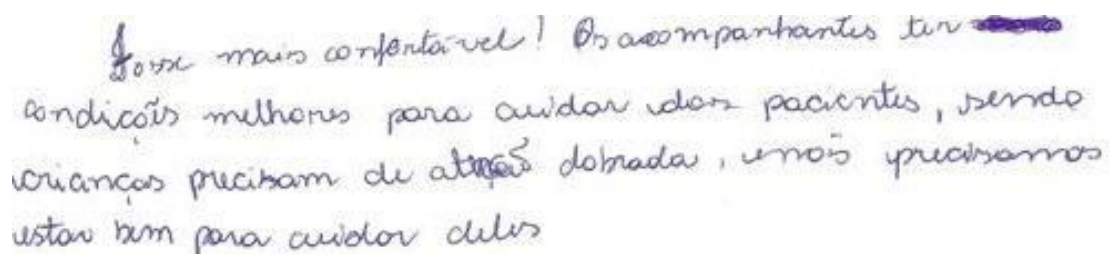 Fosse mais confortável! Os acompanhantes ter
condições melhores para cuidar dos pacientes, sendo
crianças precisam de atenção dobrada, e nós precisamos
estar bem para cuidar deles